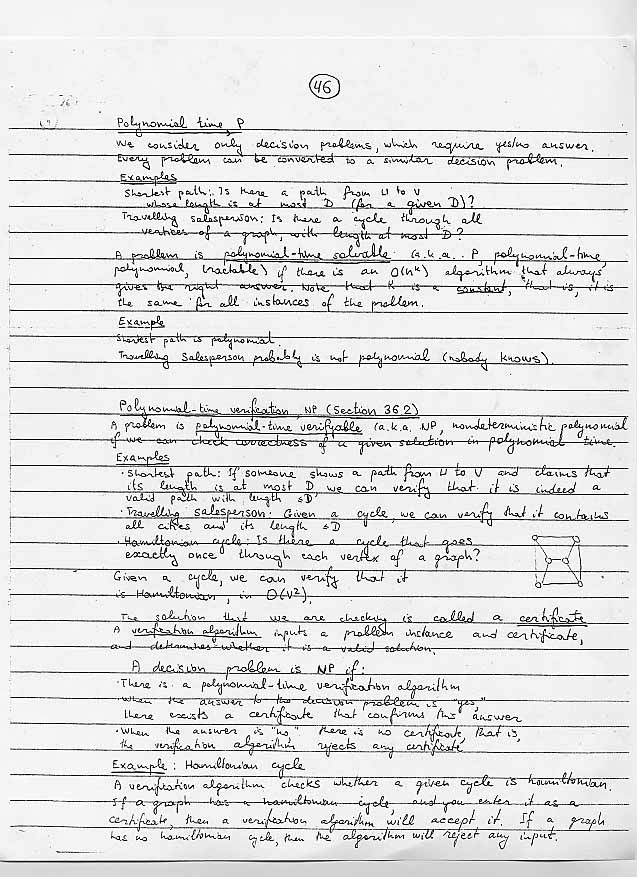 46
Polynomial time, P
We consider only decision problems, which require yes/no answer.
Every problem can be converted to a similar decision problem.
Examples
Shortest path: Is there a path from U to V
whose length is at most D (for a given D)?
Travelling salesperson: Is there a cycle through all
vertices of a graph, with length at most D?
A problem is polynomial-time solvable (a.k.a. P, polynomial-time,
polynomial, tractable) if there is an O(n^k) algorithm that always
gives the right answer. Note that k is a constant, that is, it is
the same for all instances of the problem.
Example
Shortest path is polynomial.
Travelling salesperson probably is not polynomial (nobody knows).
Polynomial-time verification, NP (Section 36.2)
A problem is polynomial-time verifyable (a.k.a. NP, nondeterministic polynomial
if we can check correctness of a given solution in polynomial time.
Examples
· Shortest path: If someone shows a path from U to V and claims that
its length is at most D we can verify that it is indeed a
valid path with length ≤D
· Travelling salesperson: Given a cycle, we can verify that it contains
all cities and its length ≤D
· Hamiltonian cycle: Is there a cycle that goes
exactly once through each vertex of a graph?
Given a cycle, we can verify that it
is Hamiltonian, in O(V²).
The solution that we are checking is called a certificate
A verification algorithm inputs a problem instance and certificate,
and determines whether it is a valid solution.
A decision problem is NP if:
· There is a polynomial-time verification algorithm
· When the answer to the decision problem is "yes,"
there exists a certificate that confirms this answer
· When the answer is "no," there is no certificate, that is,
the verification algorithm rejects any certificate
Example: Hamiltonian cycle
A verification algorithm checks whether a given cycle is hamiltonian.
If a graph has a hamiltonian cycle, and you enter it as a
certificate, then a verification algorithm will accept it. If a graph
has no hamiltonian cycle, then the algorithm will reject any input.